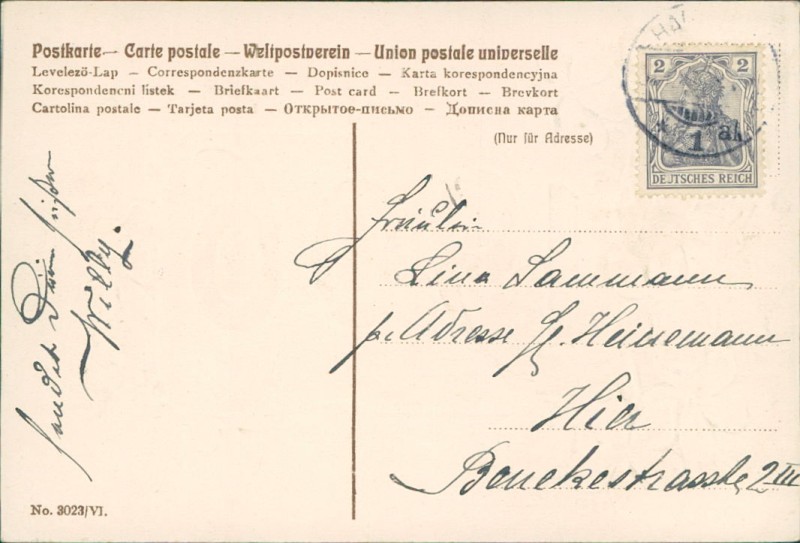 Postkarte — Carte postale — Weltpostverein — Union postale universelle
Levelező-Lap — Correspondenzkarte — Dopisnice — Karta korespondencyjna
Korespondencni listek — Briefkaart — Post card — Brefkort — Brevkort
Cartolina postale — Tarjeta posta — Открытое-письмо — Дописна карта
(Nur für Adresse)
2 2
DEUTSCHES REICH
Fräulein
Lina Sammann
p. Adresse Gg. Heinemann
Hier
Benekestrasse 2 III
sendet Dir
Willy.
No. 3023/VI.